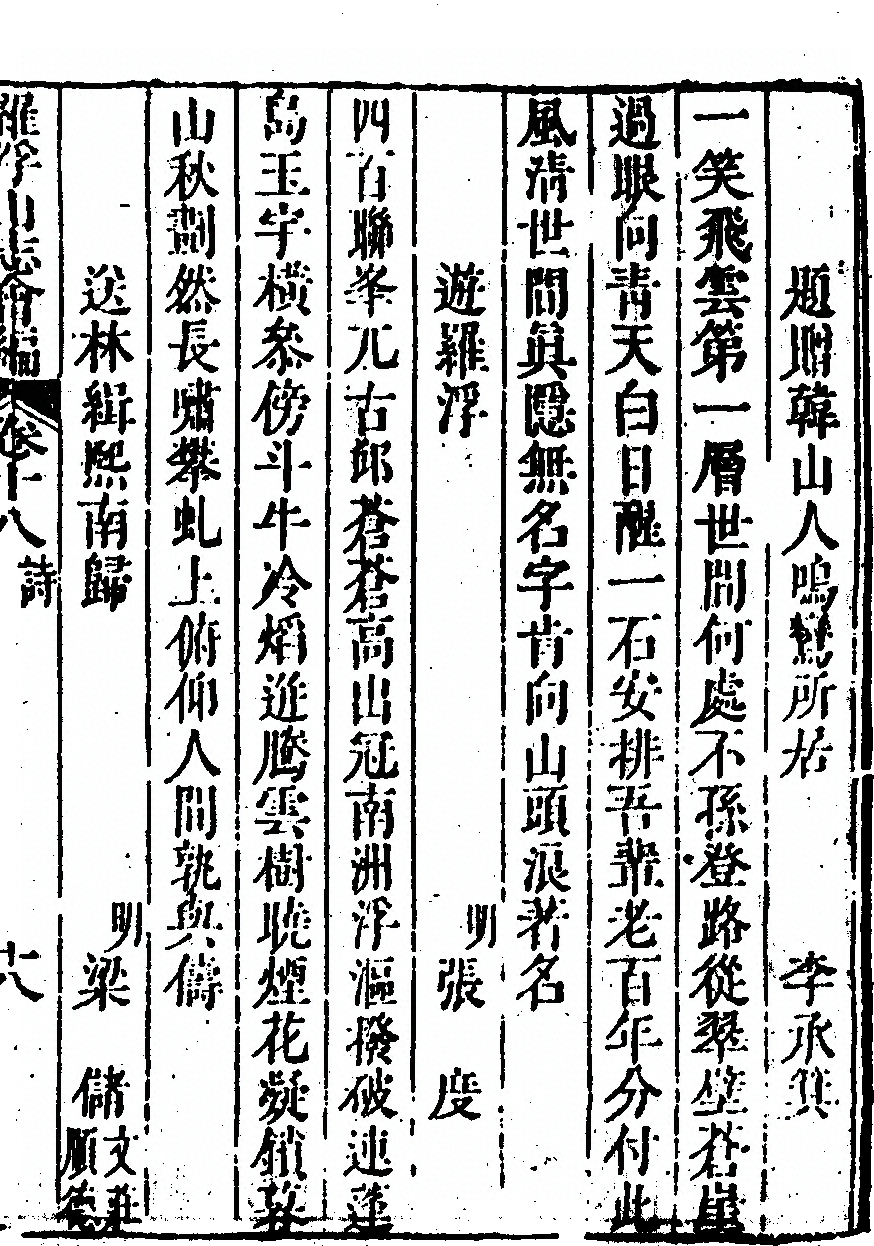 題贈韓山人鳴鸞所居 李承箕
一笑飛雲第一層世間何處不孫登路從翠壁蒼崖
過眼向青天白日醒一石安排吾輩老百年分付此
風清世間眞隱無名字肯向山頭浪著名
遊羅浮 明張 度
四百聯峯兀古邱蒼蒼高出冠南洲浮漚撥破連蓬
島玉宇橫參傍斗牛冷焰逬騰雲樹曉煙花凝鎖
山秋劃然長嘯攀虬上俯仰人間孰與儔
送林緝熙南歸 明梁 儲文莊順德
羅浮山志會編 卷十八 詩 十八